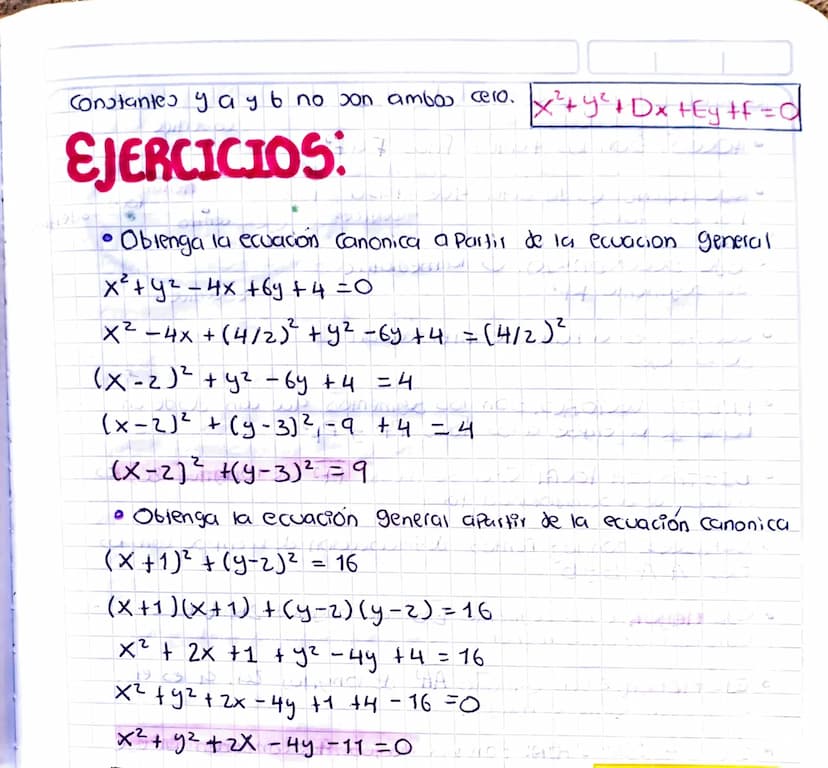 Constantes y a y b no son ambas cero. x²+y²+Dx+Ey+f=0
EJERCICIOS:
• Obtenga la ecuación canonica apartir de la ecuacion general
x²+y²-4x+6y+4=0
x²-4x+(4/2)²+y²-6y+4=(4/2)²
(x-2)²+y²-6y+4=4
(x-2)²+(y-3)²,-9+4=4
(x-2)²+(y-3)²=9
• Obtenga la ecuación general apartir de la ecuación canonica
(x+1)²+(y-2)²=16
(x+1)(x+1)+(y-2)(y-2)=16
x²+2x+1+y²-4y+4=16
x²+y²+2x-4y+1+4-16=0
x²+y²+2x-4y-11=0